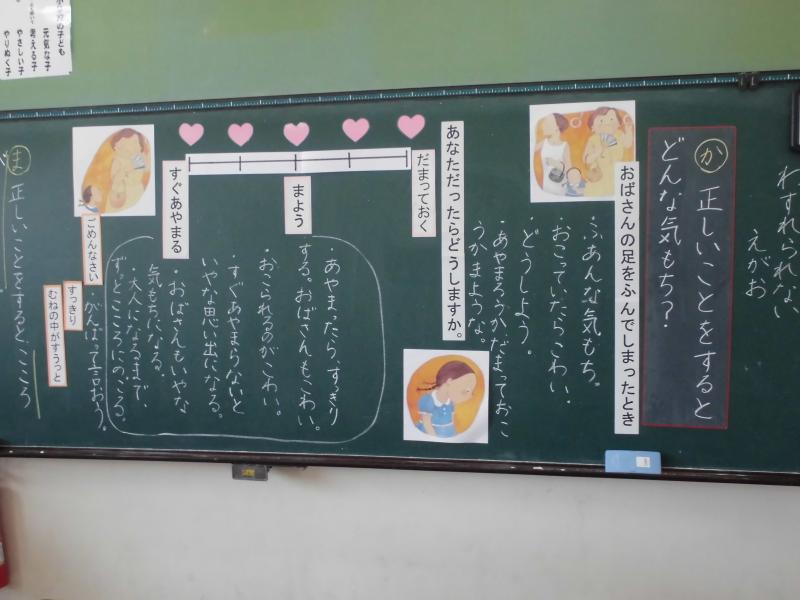 わすれられない
えがお
か 正しいことをすると
どんな気もち？
おばさんの足をふんでしまったとき
・ふあんな気もち。
・おこっていたらこわい。
・どうしよう。
・あやまろうかだまっておこ
うかまような。
あなただったらどうしますか。
だまっておく
まよう
すぐあやまる
・あやまったら、すっきり
する。おばさんもこわい。
・おこられるのがこわい。
・すぐあやまらないと
いやな思い出になる。
・おばさんもいやな
気もちになる。
・大人になるまで、
ずっとこころにのこる。
ごめんなさい
・がんばって言おう。
すっきり
むねの中がすうっと
ま 正しいことをすると、こころ
子ども
元気な子
考える子
やさしい子
やりぬく子